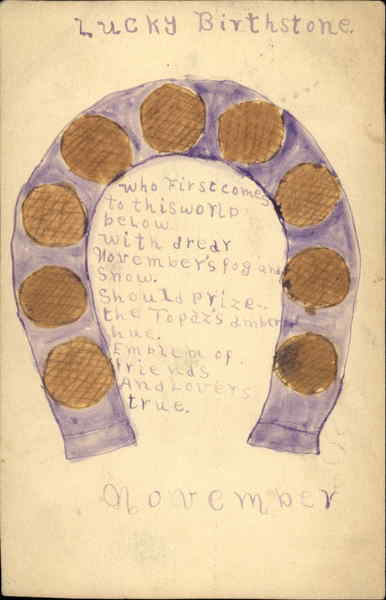 Lucky Birthstone.
Who First comes
to this world
below.
With drear
November's fog and
Snow.
Should prize..
the Topaz's amber
hue.
Emblem of.
friends
And Lovers
true.
November